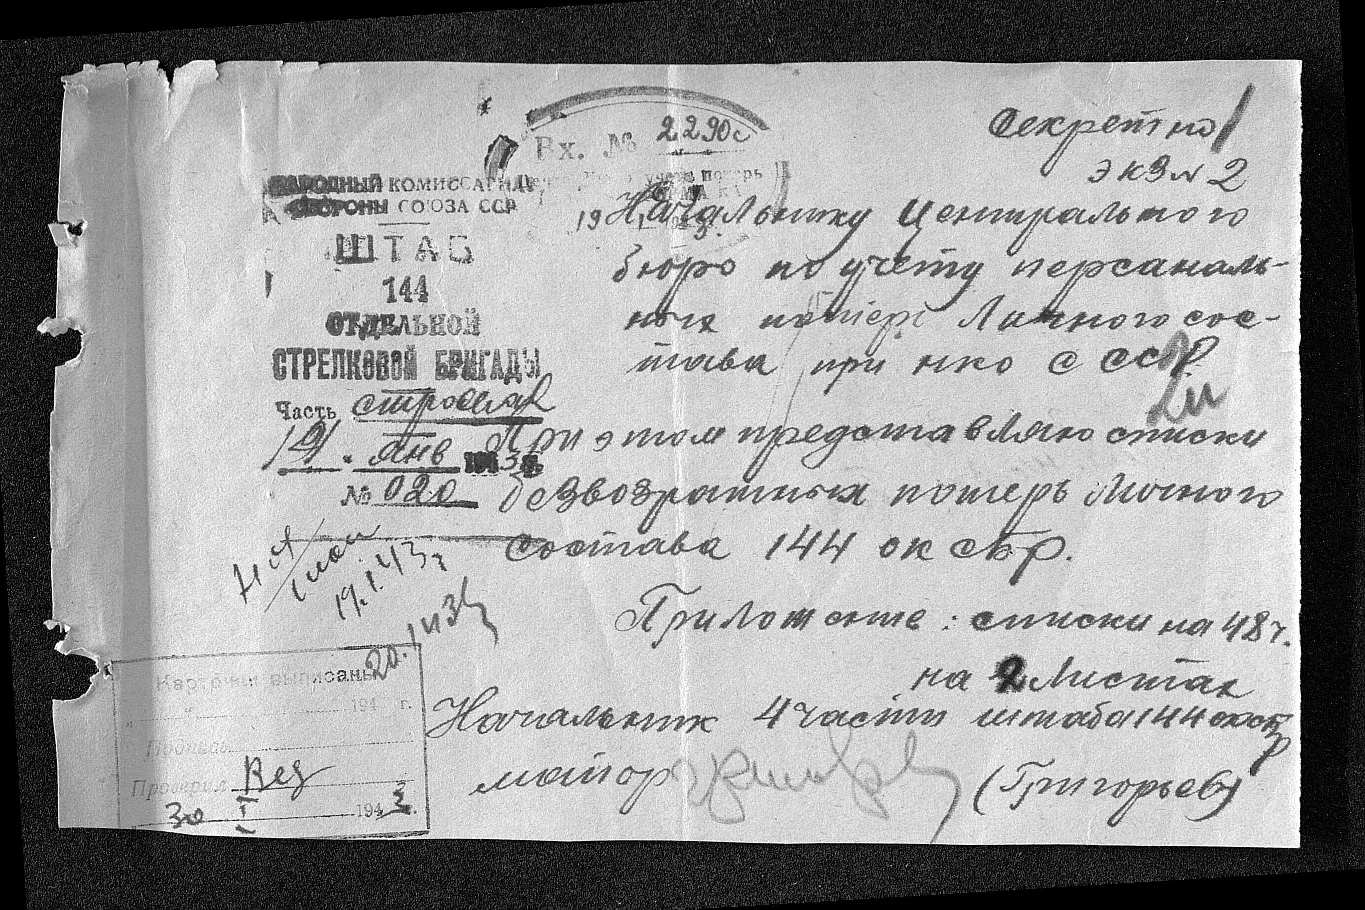 Секретно
экз № 2
Вх. № 2290с
учета потерь
НАРОДНЫЙ КОМИССАРИАТ
ОБОРОНЫ СОЮЗА ССР
ШТАБ
144
ОТДЕЛЬНОЙ
СТРЕЛКОВОЙ БРИГАДЫ
Часть строевая
14 янв 1943 г.
№ 020
Начальнику Центрального
бюро по учету персональ-
ных потерь Личного сос-
тава при нко с ССР.
При этом представляю списки
безвозратных потерь Личного
состава 144 оксбр.
Приложение: списки на 48 ч.
на 2 Листах
Начальник 4 части штаба 144 оксбр
майор
(Григорьев)
19.1.43г
20.1.43г
Карточки выписаны
194 г.
Подпись
Проверил
30 I 1943 г.